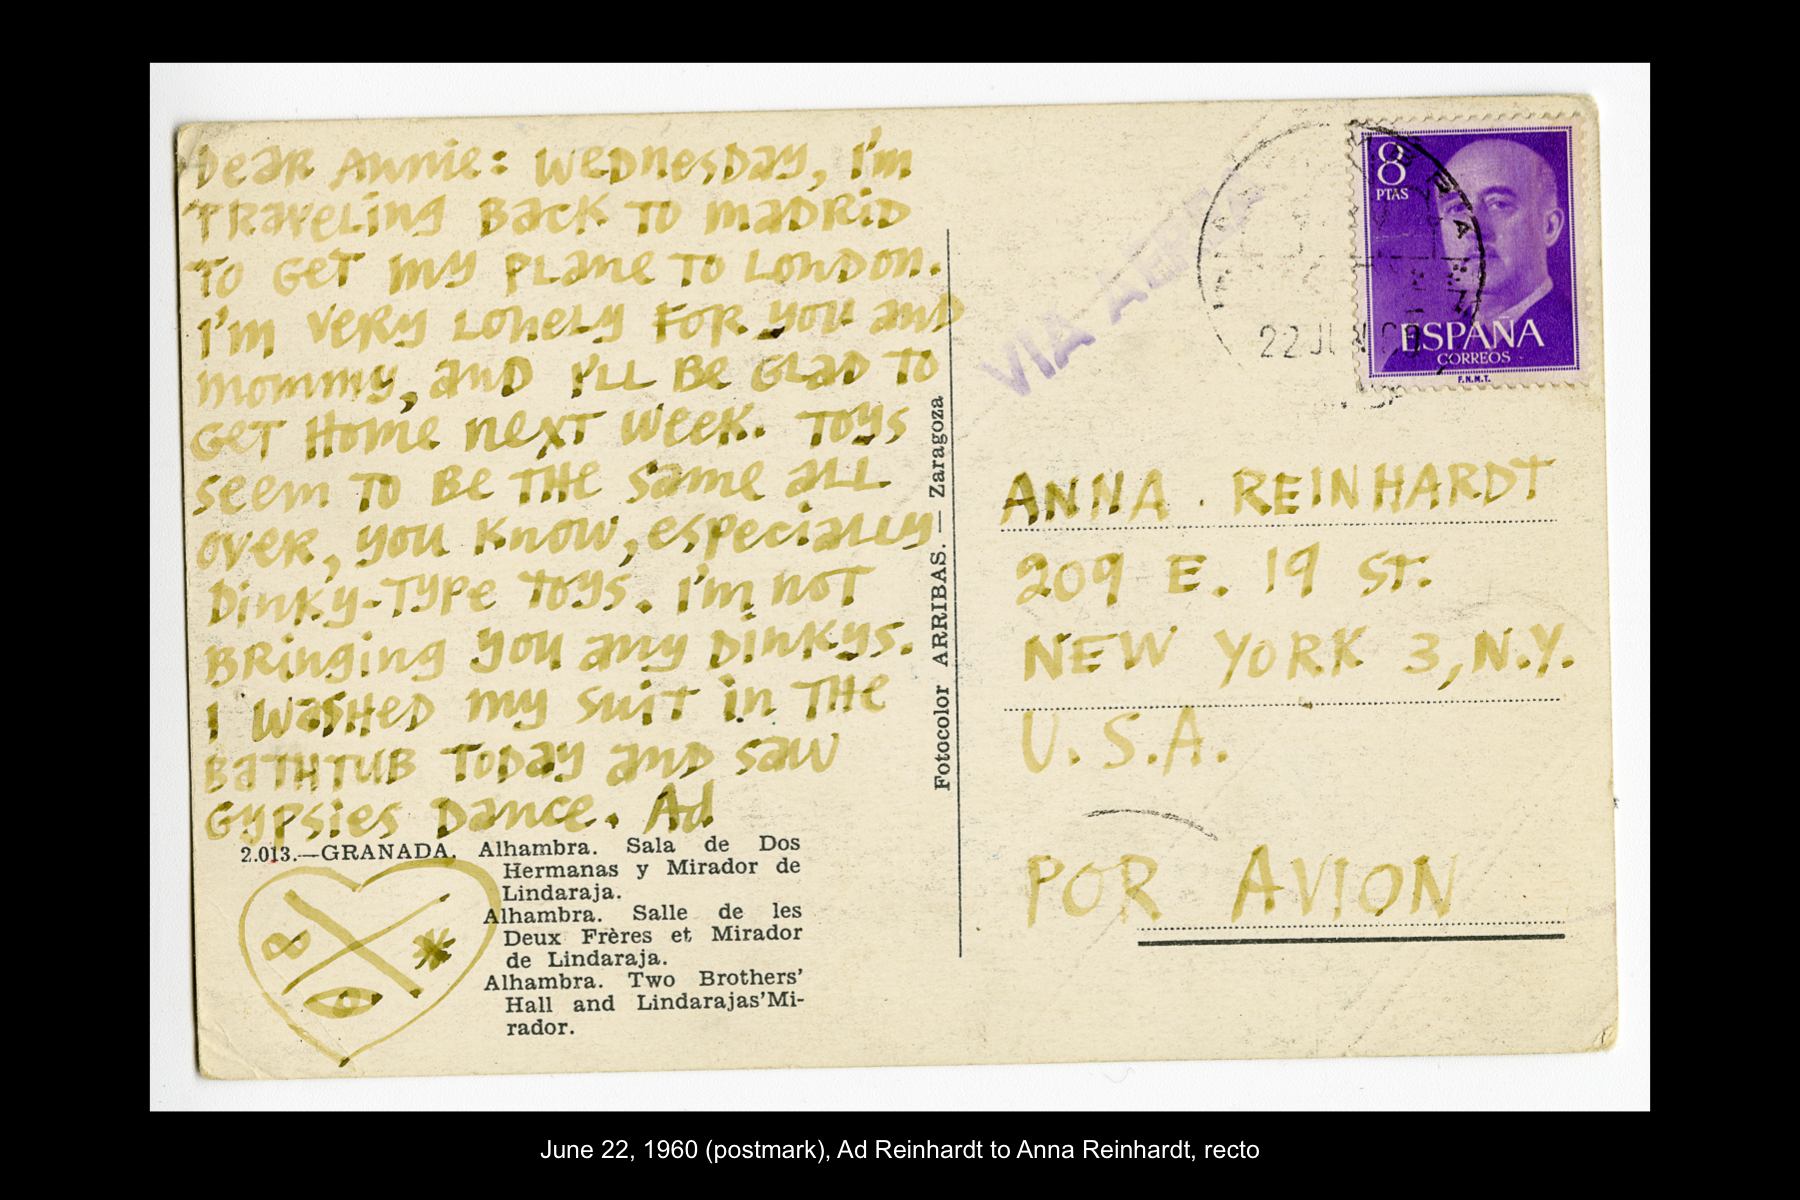 Dear Annie: Wednesday, I'm
traveling back to Madrid
to get my plane to London.
I'm very lonely for you and
mommy, and I'll be glad to
get home next week. Toys
seem to be the same all
over, you know, especially
Dinky-type toys. I'm not
bringing you any Dinkys.
I washed my suit in the
bathtub today and saw
gypsies dance. Ad
2.013.—GRANADA. Alhambra. Sala de Dos
Hermanas y Mirador de
Lindaraja.
Alhambra. Salle de les
Deux Frères et Mirador
de Lindaraja.
Alhambra. Two Brothers'
Hall and Lindarajas'Mi-
rador.
Fotocolor ARRIBAS. — Zaragoza
VIA AEREA
22 JUN 60
8
PTAS
ESPAÑA
CORREOS
F.N.M.T.
ANNA REINHARDT
209 E. 19 St.
NEW YORK 3, N.Y.
U.S.A.
POR AVION
June 22, 1960 (postmark), Ad Reinhardt to Anna Reinhardt, recto